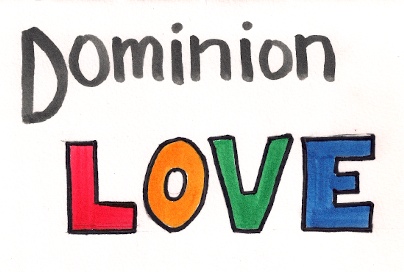 Dominion
LOVE